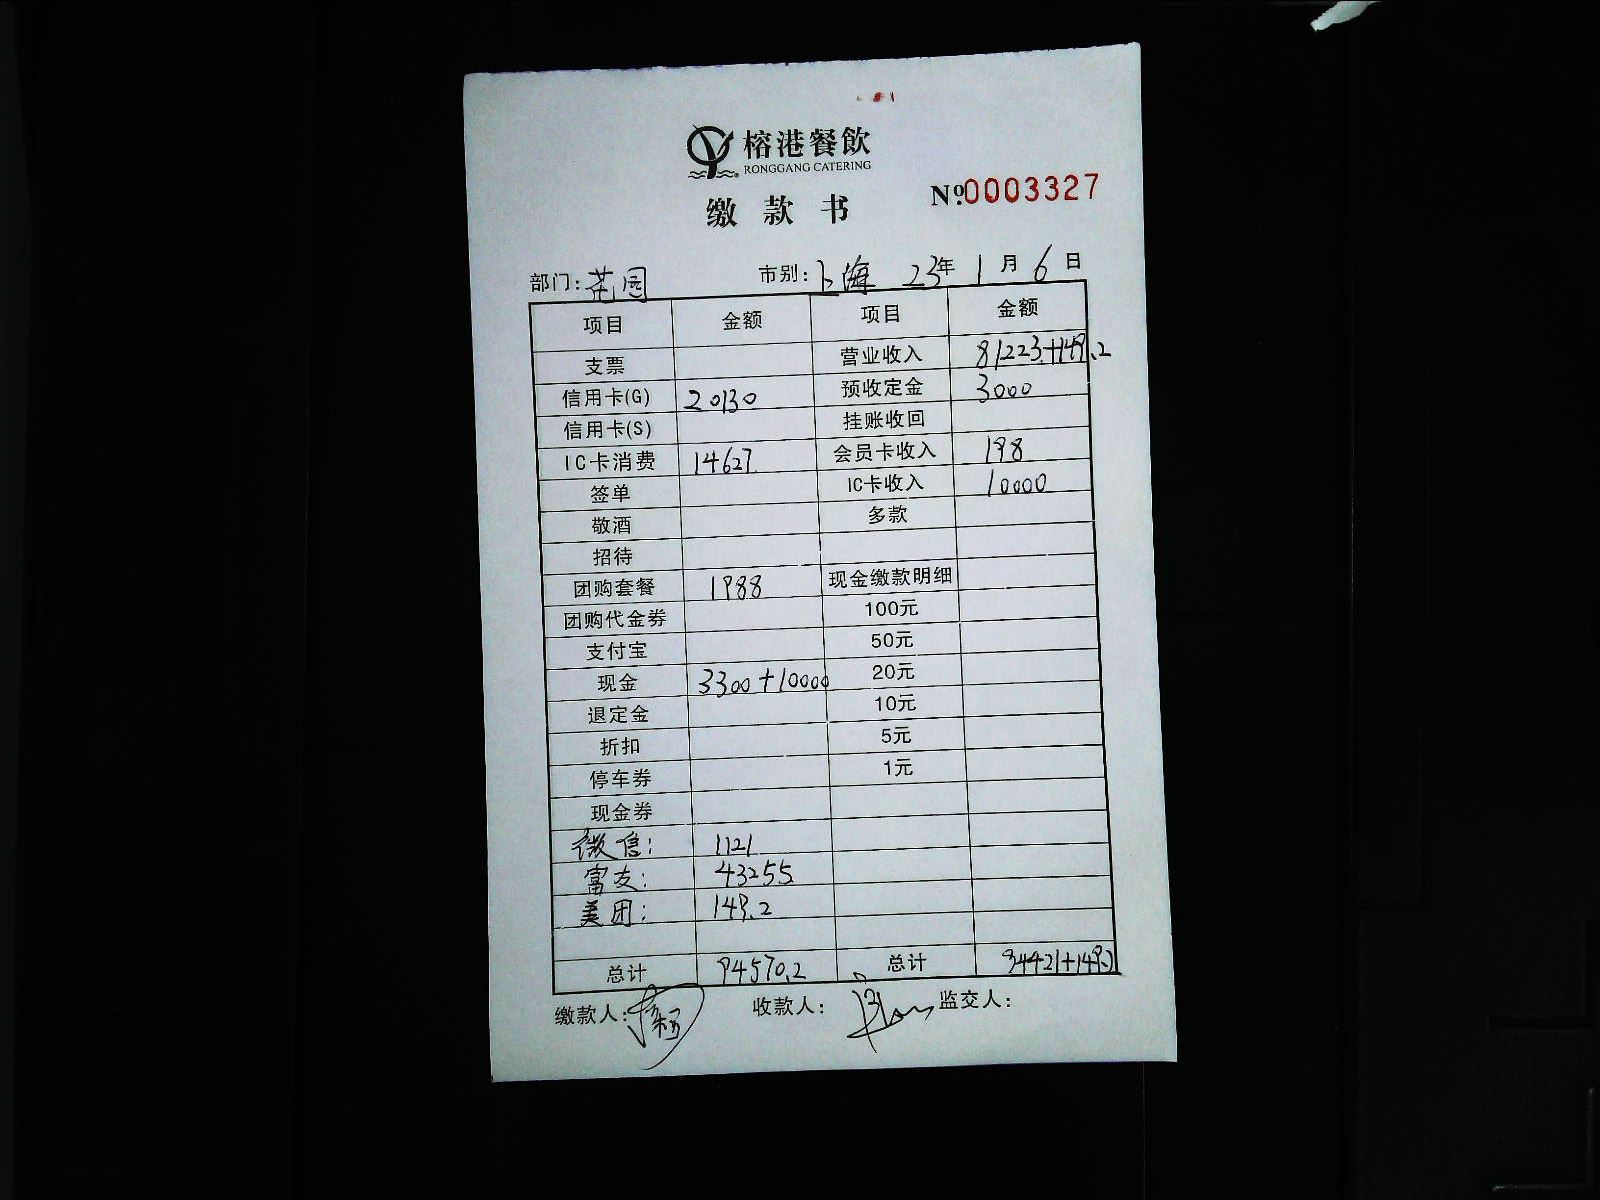 榕港餐飲
RONGGANG CATERING
缴款书
№0003327
部门：花园 市别：上海 23年1月6日
项目 金额 项目 金额
支票 营业收入 81223+149.2
信用卡(G) 20130 预收定金 3000
信用卡(S) 挂账收回
IC卡消费 14627 会员卡收入 198
签单 IC卡收入 10000
敬酒 多款
招待
团购套餐 1988 现金缴款明细
团购代金券 100元
支付宝 50元
现金 3300+10000 20元
退定金 10元
折扣 5元
停车券 1元
现金券
微信： 1121
富友： 43255
美团： 149.2
总计 94570.2 总计 94421+149.2
缴款人： 收款人： 监交人：